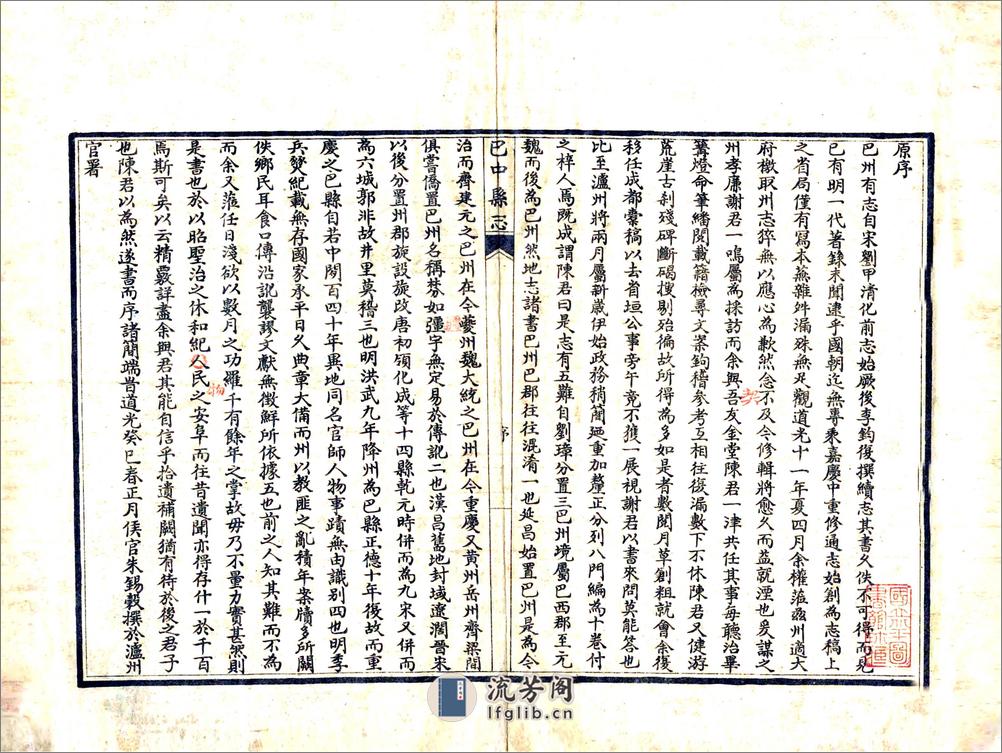 原序
巴州有志自宋劉甲清化前志始厥後李鈞復撰續志其書久佚不可得而見
已有明一代著錄未聞逮乎國朝迄無專乘嘉慶中重修通志始創為志稿上
之省局僅有寫本蕪雜舛漏殊無足觀道光十一年夏四月余權蒞茲州適大
府檄取州志猝無以應心為歉然念不及今修輯將愈久而益就湮也爰謀之
州孝廉謝君一鳴屬為採訪而余與吾友金堂陳君一津共任其事每聽治畢
篝燈命筆繙閱載籍檢尋文案鉤稽參考互相往復漏數下不休陳君又健游
荒崖古剎殘碑斷碣搜剔殆徧故所得為多如是者數閱月草創粗就會余復
移任成都橐稿以去省垣公事旁午竟不獲一展視謝君以書來問莫能答也
比至瀘州將兩月屬新歲伊始政務稍簡廼重加釐正分列八門編為十卷付
之梓人焉既成謂陳君曰是志有五難自劉璋分置三巴州境屬巴西郡至元
魏而後為巴州然地志諸書巴州巴郡往往混淆一也延昌始置巴州是為今
巴中縣志
序
治而齊建元之巴州在今夔州魏大統之巴州在今重慶又黃州岳州齊梁間
俱嘗僑置巴州名稱棼如彊宇無定易於傳訛二也漢昌舊地封域遼濶晉宋
以後分置州郡旋設旋改唐初領化成等十四縣乾元時併而為九宋又併而
為六城郭非故井里莫稽三也明洪武九年降州為巴縣正德十年復故而重
慶之巴縣自若中閒百四十年異地同名官師人物事蹟無由識别四也明季
兵燹紀載無存國家承平日久典章大備而州以教匪之亂積年案牘多所闕
佚鄉民耳食口傳沿訛襲謬文獻無徵鮮所依據五也前之人知其難而不為
而余又蒞任日淺欲以數月之功羅千有餘年之掌故毋乃不量力實甚然則
是書也於以昭聖治之休和紀人民之安阜而往昔遺聞亦得存什一於千百
焉斯可矣以云精覈詳盡余與君其能自信乎拾遺補闕猶有待於後之君子
也陳君以為然遂書而序諸簡端旹道光癸巳春正月侯官朱錫穀撰於瀘州
官署
物
流芳阁
lfglib.cn